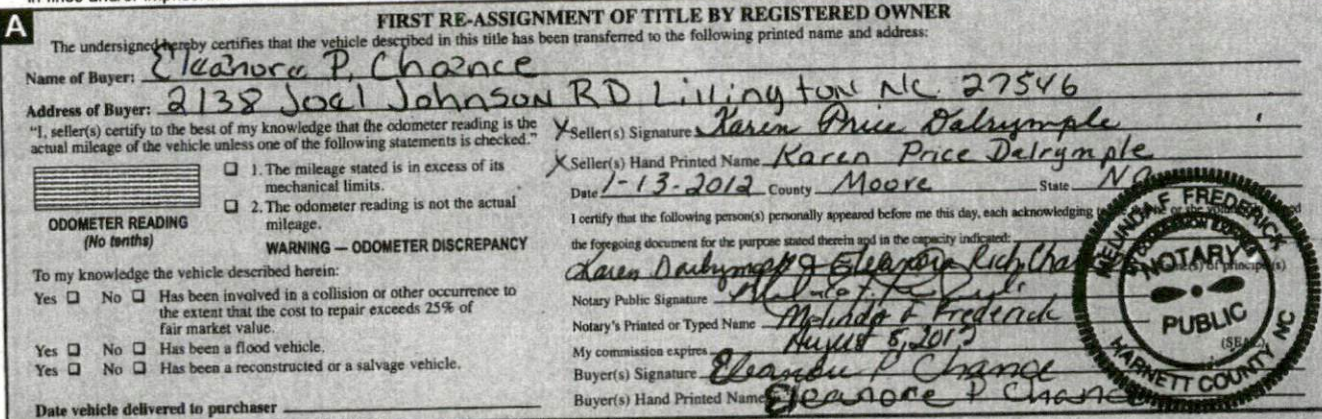 A
FIRST RE-ASSIGNMENT OF TITLE BY REGISTERED OWNER
The undersigned hereby certifies that the vehicle described in this title has been transferred to the following printed name and address:
Name of Buyer: Eleanore P. Chance
Address of Buyer: 2138 Joel Johnson RD Lillington NC 27546
"I, seller(s) certify to the best of my knowledge that the odometer reading is the
actual mileage of the vehicle unless one of the following statements is checked."
☐ 1. The mileage stated is in excess of its
mechanical limits.
☐ 2. The odometer reading is not the actual
mileage.
ODOMETER READING
(No tenths)
WARNING — ODOMETER DISCREPANCY
To my knowledge the vehicle described herein:
Yes ☐ No ☐ Has been involved in a collision or other occurrence to
the extent that the cost to repair exceeds 25% of
fair market value.
Yes ☐ No ☐ Has been a flood vehicle.
Yes ☐ No ☐ Has been a reconstructed or a salvage vehicle.
Date vehicle delivered to purchaser
X Seller(s) Signature Karen Price Dalrymple
X Seller(s) Hand Printed Name Karen Price Dalrymple
Date 1-13-2012 County Moore State NC
I certify that the following person(s) personally appeared before me this day, each acknowledging
the foregoing document for the purpose stated therein and in the capacity indicated:
Karen
(s) of principal(s)
Notary Public Signature
Notary's Printed or Typed Name Melinda F Frederick
My commission expires August 5, 201
Buyer(s) Signature Eleanore P Chance
Buyer(s) Hand Printed Name Eleanore P Chance
MELINDA F FREDERICK
MY COMMISSION EXPIRES
NOTARY
PUBLIC
(SEAL)
HARNETT COUNTY NC